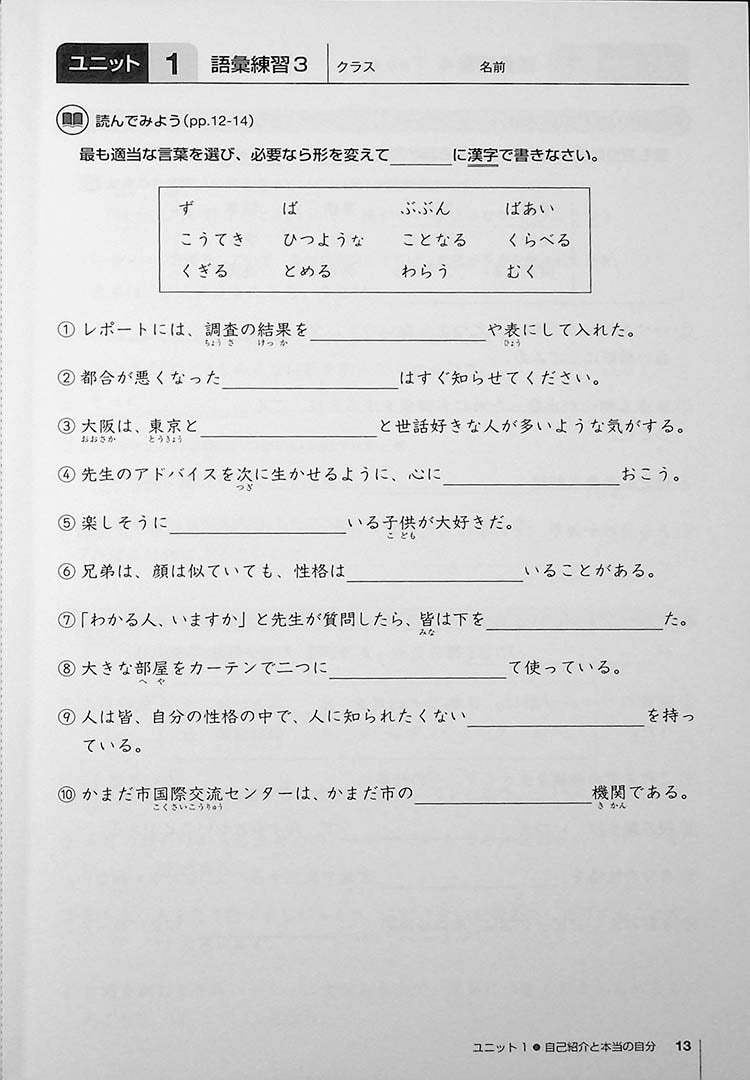 ユニット 1 語彙練習3 クラス 名前
読んでみよう(pp.12-14)
最も適当な言葉を選び、必要なら形を変えて＿＿＿に漢字で書きなさい。
ず ば ぶぶん ばあい
こうてき ひつような ことなる くらべる
くぎる とめる わらう むく
① レポートには、調査の結果を＿＿＿＿＿＿や表にして入れた。
ちょう さ けっ か ひょう
② 都合が悪くなった＿＿＿＿＿＿はすぐ知らせてください。
③ 大阪は、東京と＿＿＿＿＿＿と世話好きな人が多いような気がする。
おおさか とうきょう
④ 先生のアドバイスを次に生かせるように、心に＿＿＿＿＿＿おこう。
つぎ
⑤ 楽しそうに＿＿＿＿＿＿いる子供が大好きだ。
こ ども
⑥ 兄弟は、顔は似ていても、性格は＿＿＿＿＿＿いることがある。
⑦「わかる人、いますか」と先生が質問したら、皆は下を＿＿＿＿＿＿た。
みな
⑧ 大きな部屋をカーテンで二つに＿＿＿＿＿＿て使っている。
へ や
⑨ 人は皆、自分の性格の中で、人に知られたくない＿＿＿＿＿＿を持っ
ている。
⑩ かまだ市国際交流センターは、かまだ市の＿＿＿＿＿＿機関である。
こくさいこうりゅう き かん
ユニット 1 ● 自己紹介と本当の自分 13